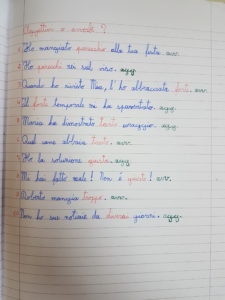 Aggettivi o avverbi?
Ho mangiato parecchio alla tua festa. avv.
Ho parecchi bei voti. agg.
Quando ho visto Mia, l'ho abbracciata forte. avv.
Il forte temporale mi ha spaventato. agg.
Maria ha dimostrato tanto coraggio. agg.
Quel cane abbaia tanto. avv.
Ho la soluzione giusta. agg.
Mi hai fatto male! Non è giusto! avv.
Roberto mangia troppo. avv.
Non ho sue notizie da diversi giorni. agg.